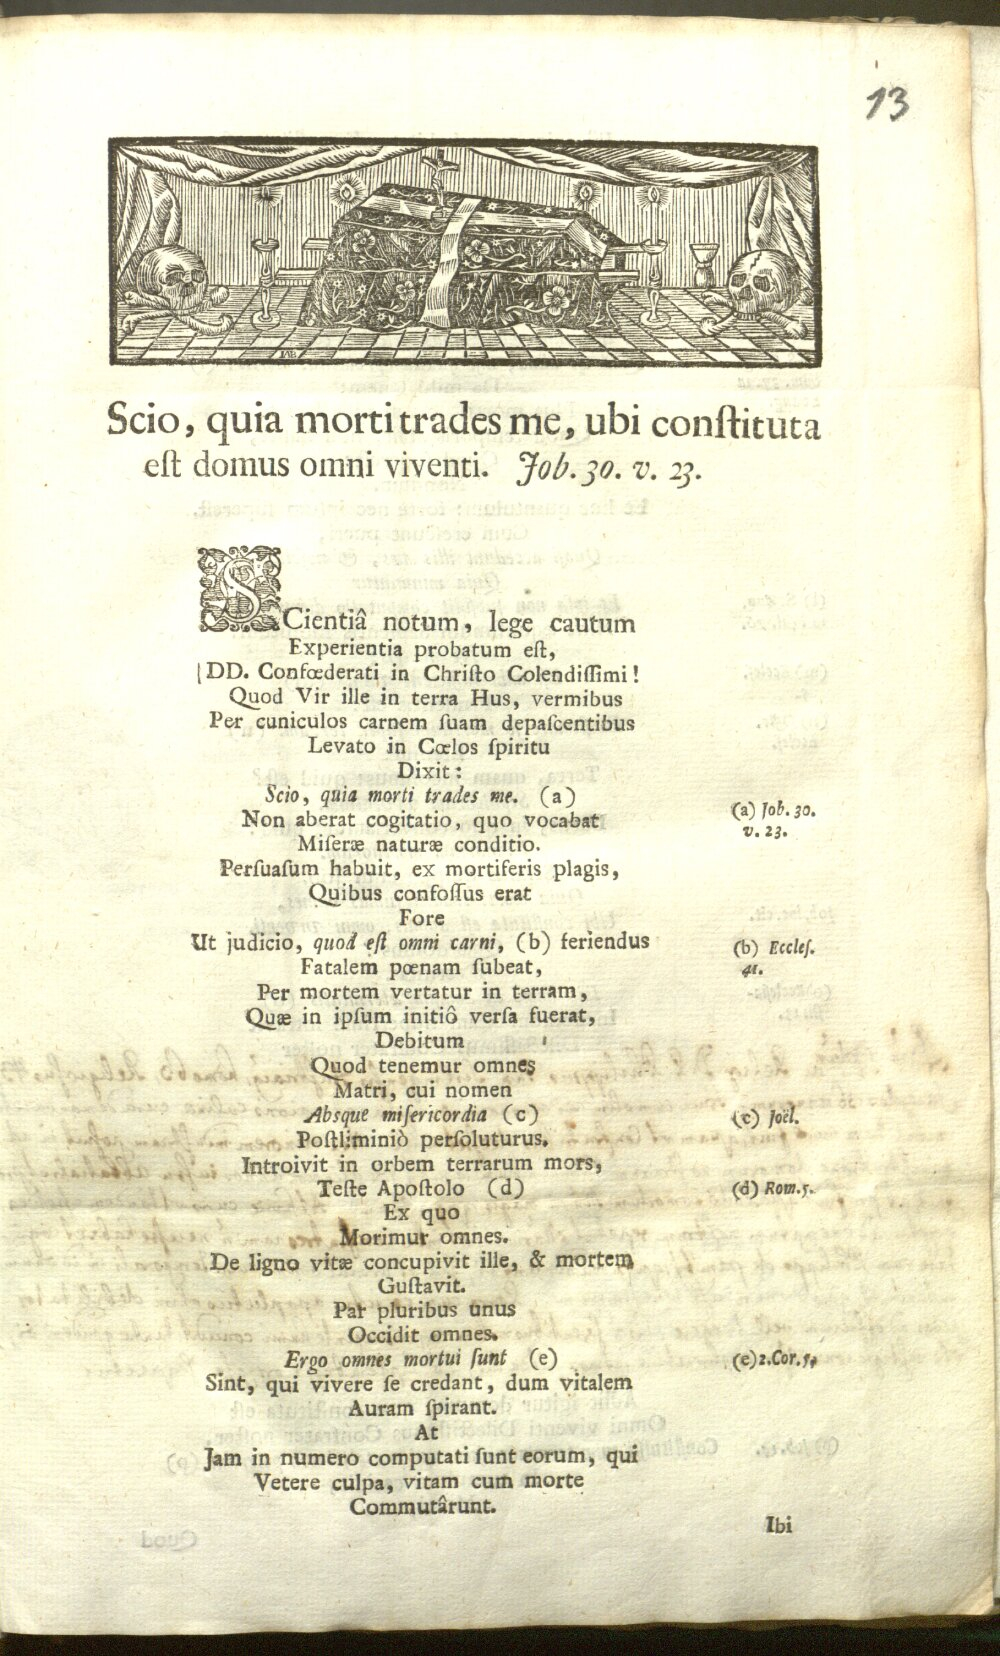 13
Scio, quia morti trades me, ubi conſtituta
eſt domus omni viventi. Job. 30. v. 23.
SCientiâ notum, lege cautum
Experientia probatum eſt,
DD. Confœderati in Chriſto Colendiſſimi!
Quod Vir ille in terra Hus, vermibus
Per cuniculos carnem ſuam depaſcentibus
Levato in Cœlos ſpiritu
Dixit:
Scio, quia morti trades me. (a)
(a) Job. 30.
v. 23.
Non aberat cogitatio, quo vocabat
Miſeræ naturæ conditio.
Perſuaſum habuit, ex mortiferis plagis,
Quibus confoſſus erat
Fore
Ut judicio, quod eſt omni carni, (b) feriendus
(b) Eccleſ.
41.
Fatalem pœnam ſubeat,
Per mortem vertatur in terram,
Quæ in ipſum initiô verſa fuerat,
Debitum
Quod tenemur omnes
Matri, cui nomen
Absque miſericordia (c)
(c) Joël.
Poſtliminiò perſoluturus.
Introivit in orbem terrarum mors,
Teſte Apoſtolo (d)
(d) Rom. 5.
Ex quo
Morimur omnes.
De ligno vitæ concupivit ille, & mortem
Guſtavit.
Par pluribus unus
Occidit omnes.
Ergo omnes mortui ſunt (e)
(e) 2. Cor. 5.
Sint, qui vivere ſe credant, dum vitalem
Auram ſpirant.
At
Jam in numero computati ſunt eorum, qui
Vetere culpa, vitam cum morte
Commutârunt.
Ibi